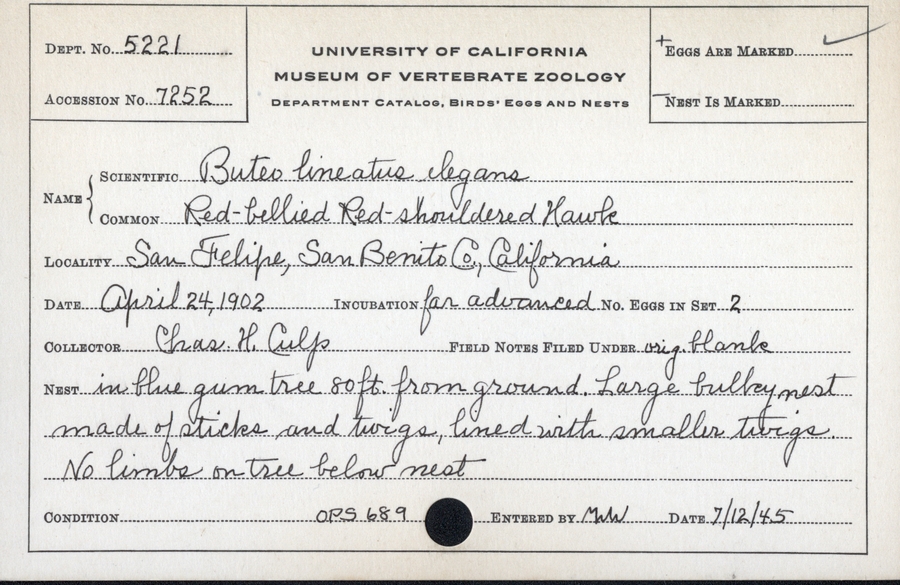 DEPT. NO. 5221
ACCESSION NO. 7252
UNIVERSITY OF CALIFORNIA
MUSEUM OF VERTEBRATE ZOOLOGY
DEPARTMENT CATALOG, BIRDS' EGGS AND NESTS
+EGGS ARE MARKED ✓
—NEST IS MARKED
NAME { SCIENTIFIC Buteo lineatus elegans
COMMON Red-bellied Red-shouldered Hawk
LOCALITY San Felipe, San Benito Co., California
DATE April 24, 1902 INCUBATION far advanced NO. EGGS IN SET 2
COLLECTOR Chas. H. Culp FIELD NOTES FILED UNDER orig. blank
NEST in blue gum tree 80ft. from ground. Large bulky nest
made of sticks and twigs, lined with smaller twigs.
No limbs on tree below nest
CONDITION ORS 689 ENTERED BY DATE 7/12/45